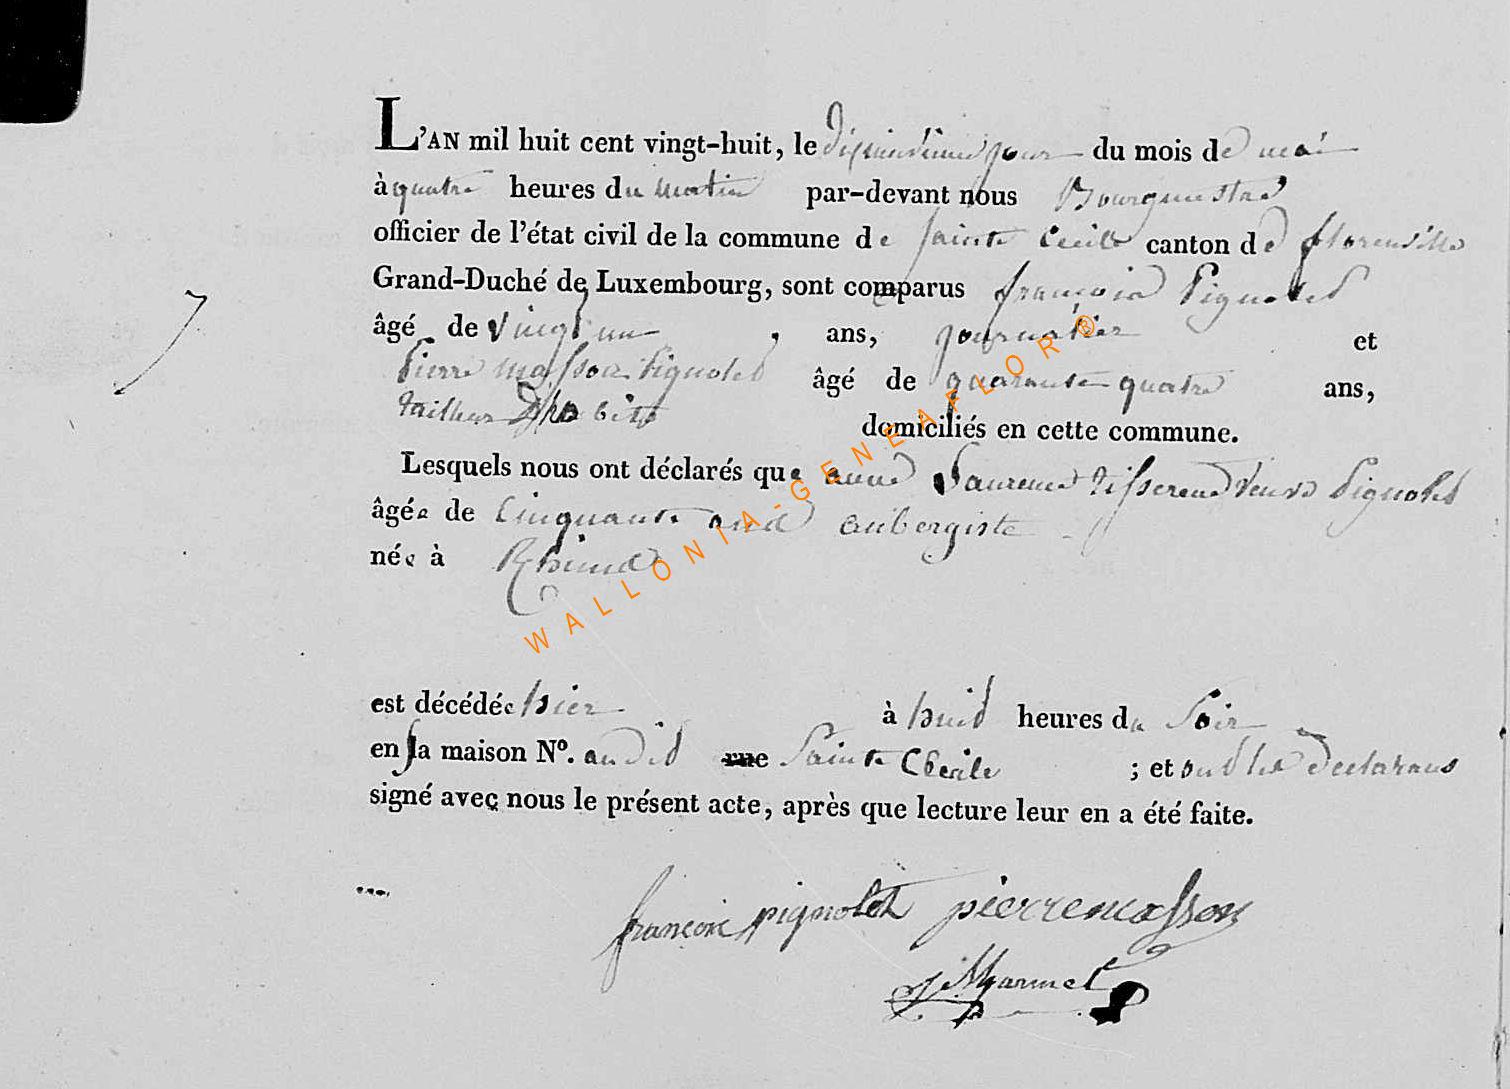 L'AN mil huit cent vingt-huit, le dixseptieme jour du mois de mai
à quatre heures du matin par-devant nous Bourguestre
officier de l'état civil de la commune de Sainte Cecile canton de florenville
Grand-Duché de Luxembourg, sont comparus françois Pignolet
âgé de vingt un ans, journalier et
Pierre Masson Pignolet âgé de quarante quatre ans,
tailleur d'habits domiciliés en cette commune.
Lesquels nous ont déclarés que anne Laurence tisserend veuve Pignolet
âgée de Cinquante aubergiste
née à
est décédée hier à huid heures du Soir
en sa maison Nº. audid rue Sainte Checile ; et ond les declarans
signé avec nous le présent acte, après que lecture leur en a été faite.
françois pignolet pierremasson
J Marmet
WALLONIA-GENEAFLOR®